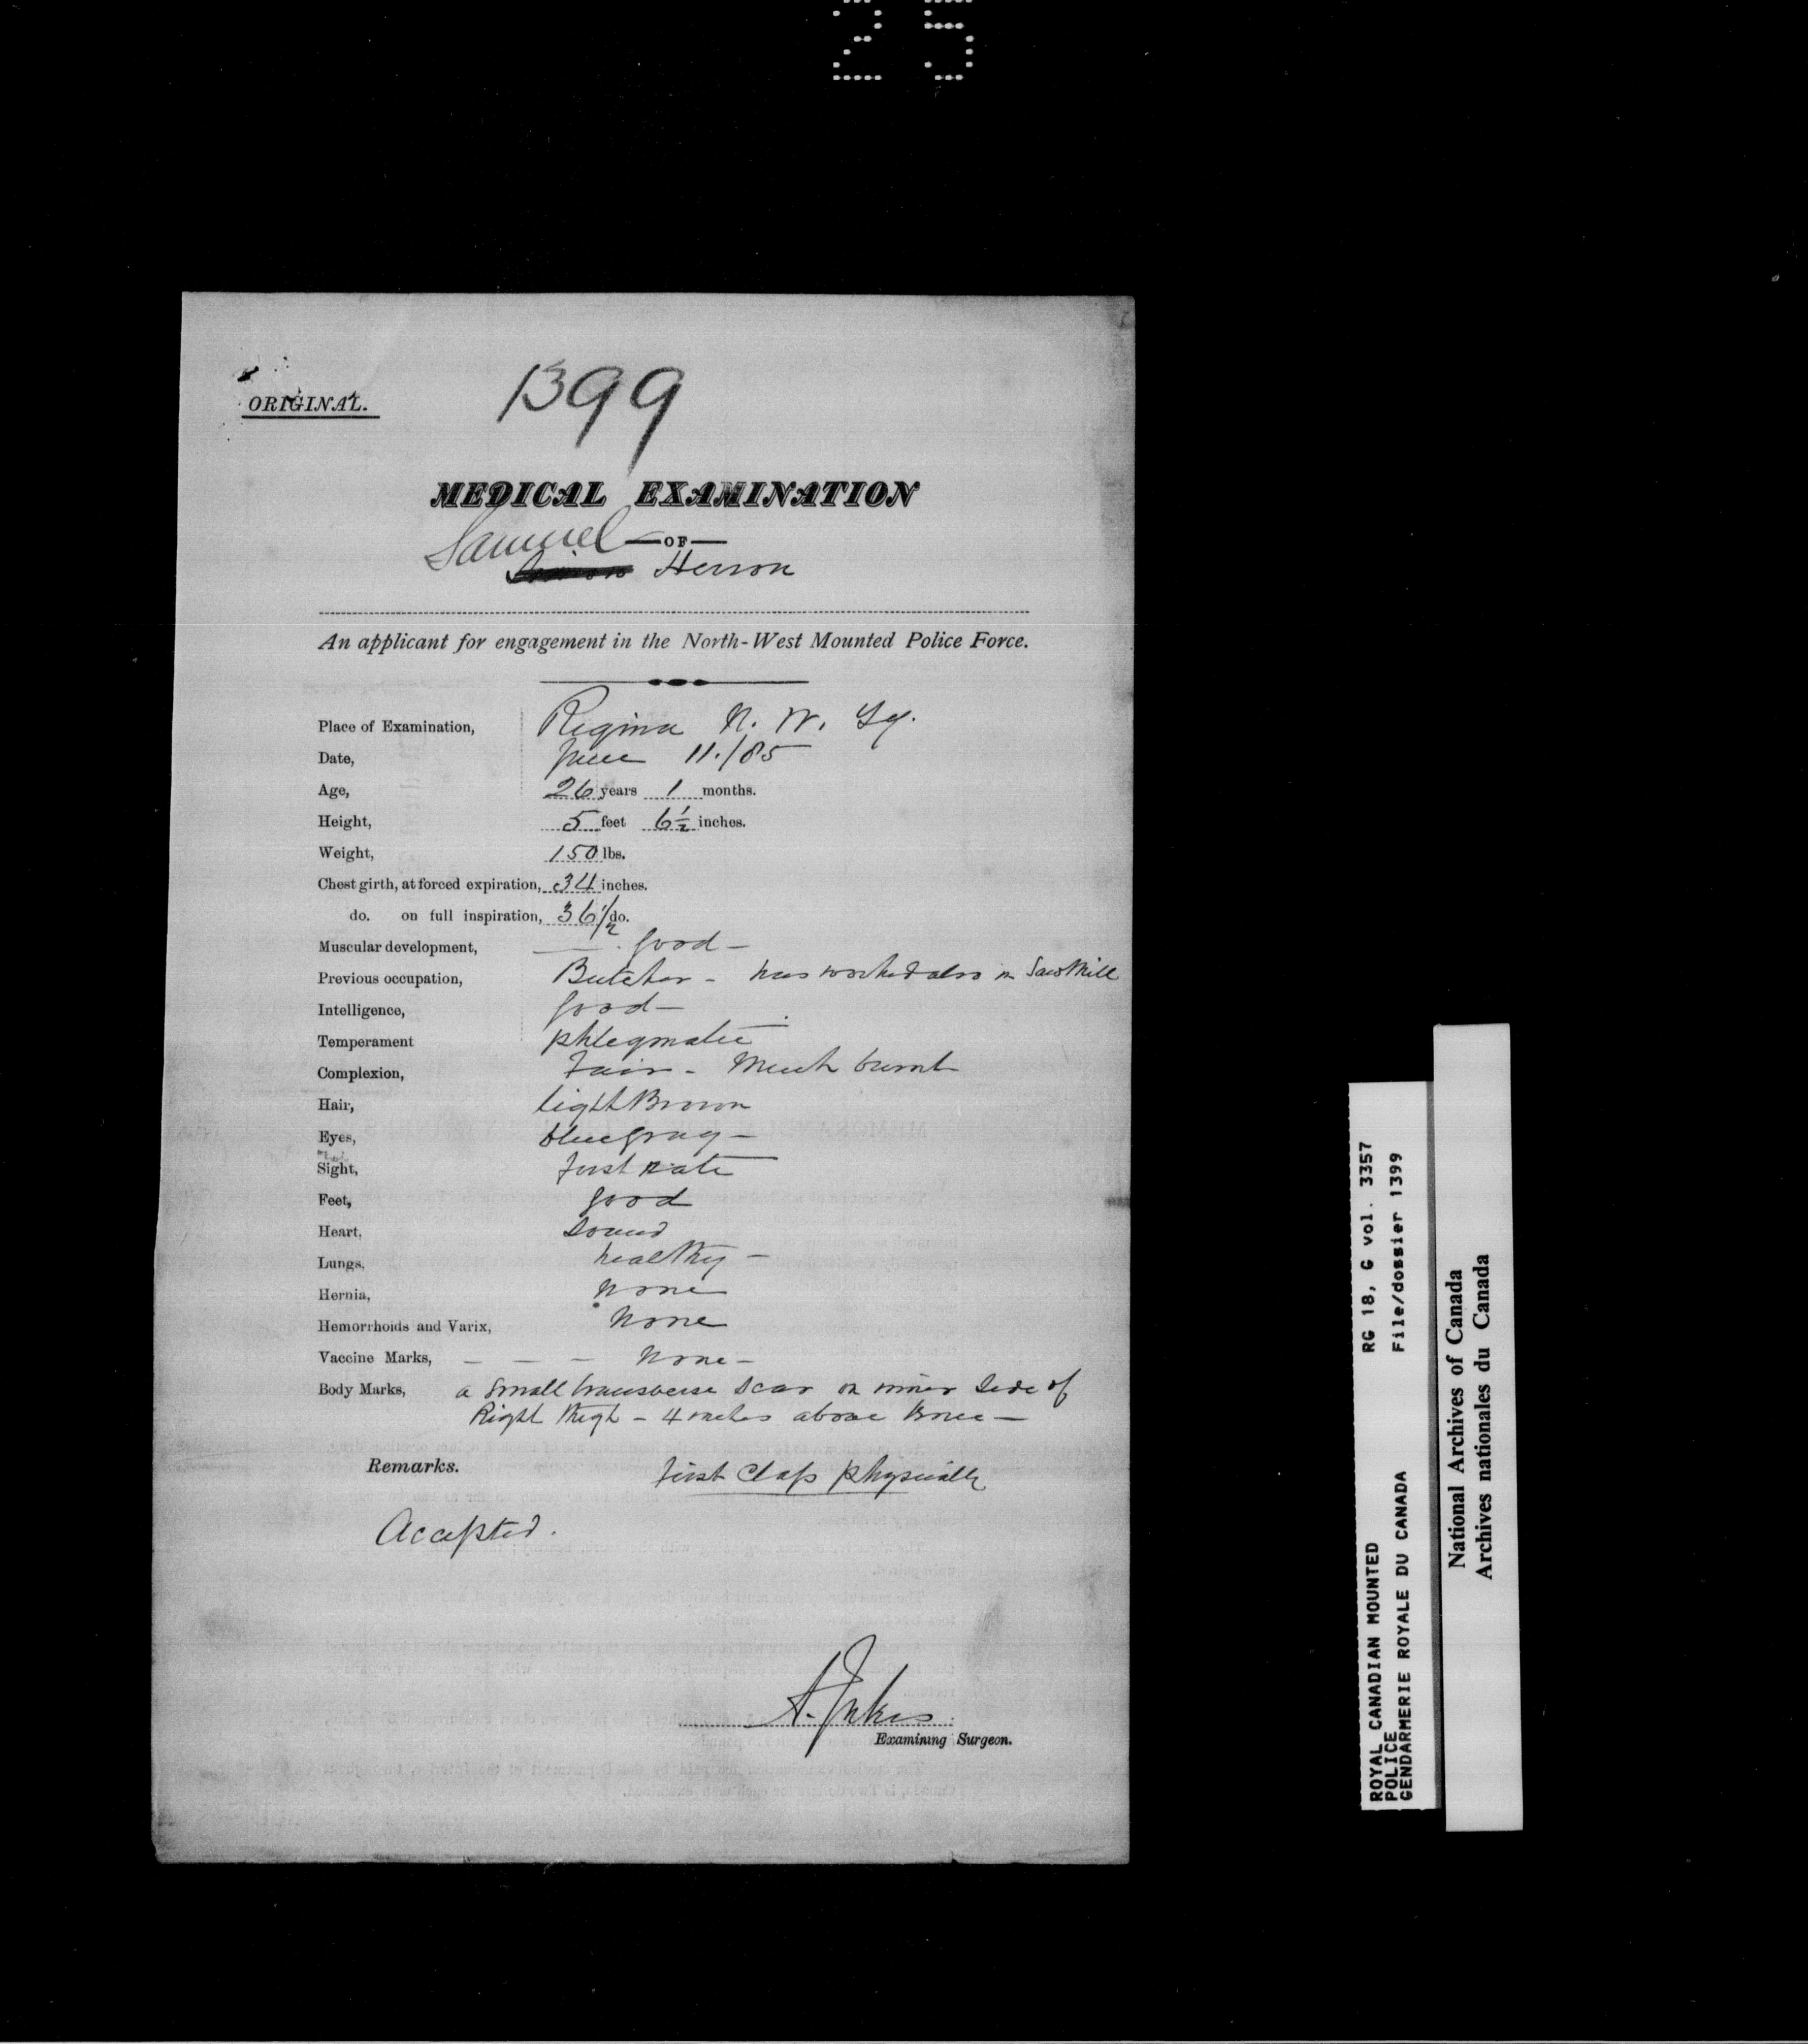 25
ORIGINAL.
1399
MEDICAL EXAMINATION
Samuel —OF—
Herron
An applicant for engagement in the North-West Mounted Police Force.
Place of Examination, Regina N. W. Ty.
Date, June 11./85
Age, 26 years 1 months.
Height, 5 feet 6½ inches.
Weight, 150 lbs.
Chest girth, at forced expiration, 34 inches.
do. on full inspiration, 36½ do.
Muscular development, good —
Previous occupation, Butcher - has worked also in Saw Mill
Intelligence, good —
Temperament phlegmatic
Complexion, Fair - Much burnt
Hair, light Brown
Eyes, blue gray —
Sight, first rate
Feet, good
Heart, Sound
Lungs, healthy —
Hernia, none
Hemorrhoids and Varix, None
Vaccine Marks, — — — None —
Body Marks, a small transverse scar on inner side of
Right thigh - 4 inches above knee —
Remarks. first class physically
Accepted.
A. Jukes
Examining Surgeon.
RG 18, G vol. 3357
File/dossier 1399
ROYAL CANADIAN MOUNTED
POLICE
GENDARMERIE ROYALE DU CANADA
National Archives of Canada
Archives nationales du Canada